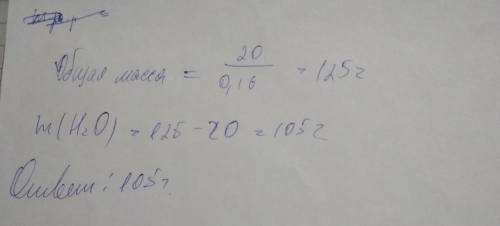 Общая масса = 20 / 0,16 = 125г
m(H₂O) = 125 - 20 = 105г
Ответ: 105г.